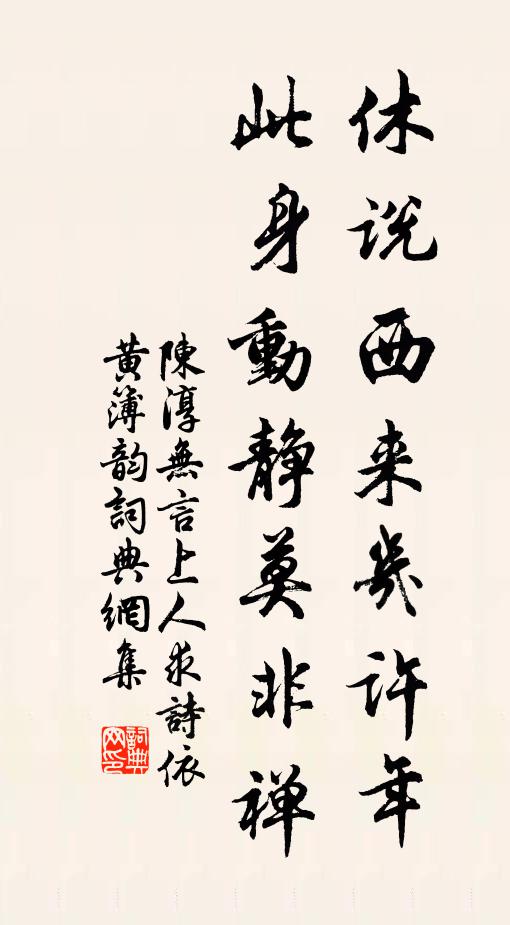 休说西来几许年
此身動静莫非禅
陳淳無言上人求詩依
黄簿韵詞典網集
詞典网印